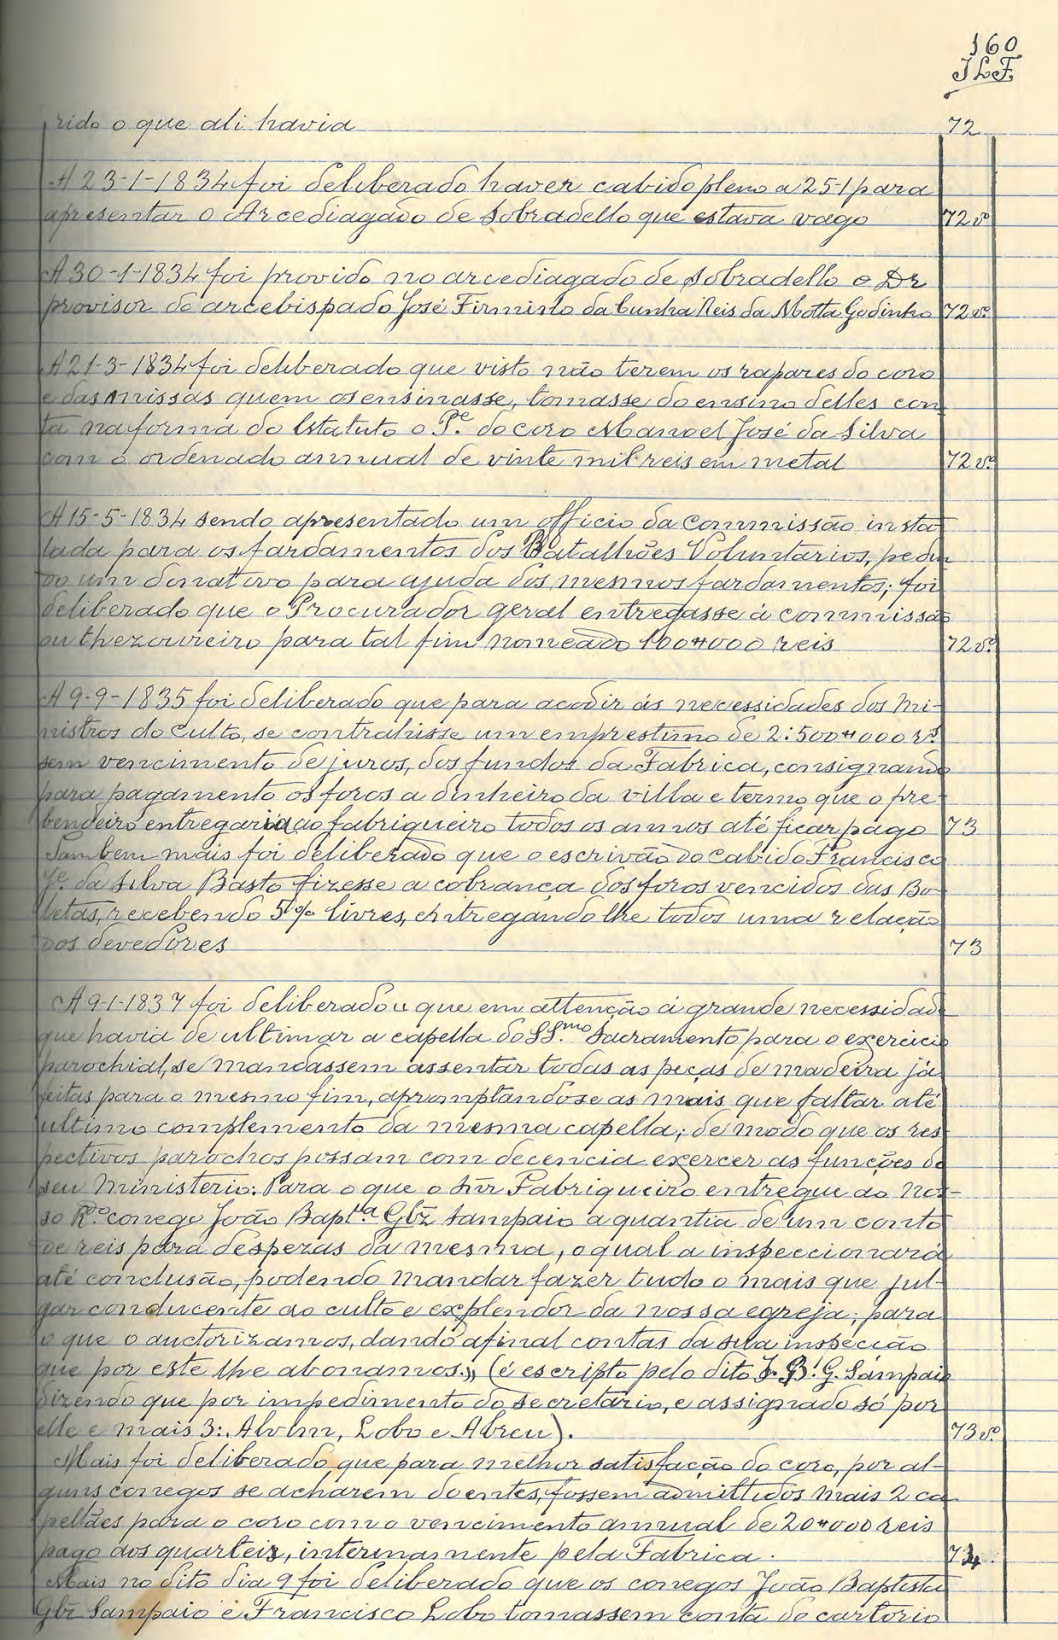 160
JLF
rido o que ali havia 72
A 23-1-1834 foi deliberado haver cabido pleno a 25-1 para
apresentar o Arcediagado de Sobradello que estava vago 72 vº
A 30-1-1834 foi provido no arcediagado de Sobradello o Dr
provisor do arcebispado José Firmino da Cunha Reis da Motta Godinho 72 vº
A 21-3-1834 foi deliberado que visto não terem os rapazes do coro
e das missas quem os ensinasse, tomasse do ensino delles con
ta na forma do Estatuto o Pe. do coro Manoel José da Silva
com o ordenado annual de vinte mil reis em metal 72 vº
A 15-5-1834 sendo apresentado um officio da Commissão insta
lada para os fardamentos dos Batalhões Voluntarios, pedin
do um donativo para ajuda dos mesmos fardamentos; foi
deliberado que o Procurador geral entregasse á commissão
ou thezoureiro para tal fim nomeado 100#000 reis 72 vº
A 9-9-1835 foi deliberado que para acodir ás necessidades dos Mi-
nistros do Culto, se contrahisse um emprestimo de 2:500#000 rs
sem vencimento de juros, dos fundos da Fabrica, consignando
para pagamento os foros a dinheiro da villa e termo que o pre-
bendeiro entregaria ao fabriqueiro todos os annos até ficar pago 73
Tambem mais foi deliberado que o escrivão do Cabido Francisco
Je. da Silva Basto fizesse a cobrança dos foros vencidos das Bo-
letas, recebendo 5% livres, entregando lhe todos uma relação
dos devedores 73
A 9-1-1837 foi deliberado u que em attenção á grande necessidade
que havia de ultimar a capella do SSmo. Sacramento para o exercicio
parochial, se mandassem assentar todas as peças de madeira já
feitas para o mesmo fim, apromptandose as mais que faltar até
ultimo complemento da mesma capella; de modo que os res-
pectivos parochos possam com decencia exercer as funções do
seu Ministerio: Para o que o Snr Fabriqueiro entregue ao Nos-
so Ro. conego João Bapta Glz Sampaio a quantia de um conto
de reis para despezas da mesma, o qual a inspeccionará
até conclusão, podendo mandar fazer tudo o mais que jul-
gar conducente ao culto e explendor da nossa egreja; para
o que o auctorizamos, dando afinal contas da sua inspecção
que por este lhe abonamos." (é escripto pelo dito J. B. G. Sampaio
dizendo que por impedimento do secretario, e assignado só por
elle e mais 3: Alvim, Lobo e Abreu). 73 vº
Mais foi deliberado que para melhor satisfação do coro, por al-
guns conegos se acharem doentes, fossem admittidos mais 2 ca
pellães para o coro com o vencimento annual de 20#000 reis
pago aos quarteis, interinamente pela Fabrica. 74
Mais no dito dia 9 foi deliberado que os conegos João Baptista
Glz Sampaio e Francisco Lobo tomassem conta do cartorio